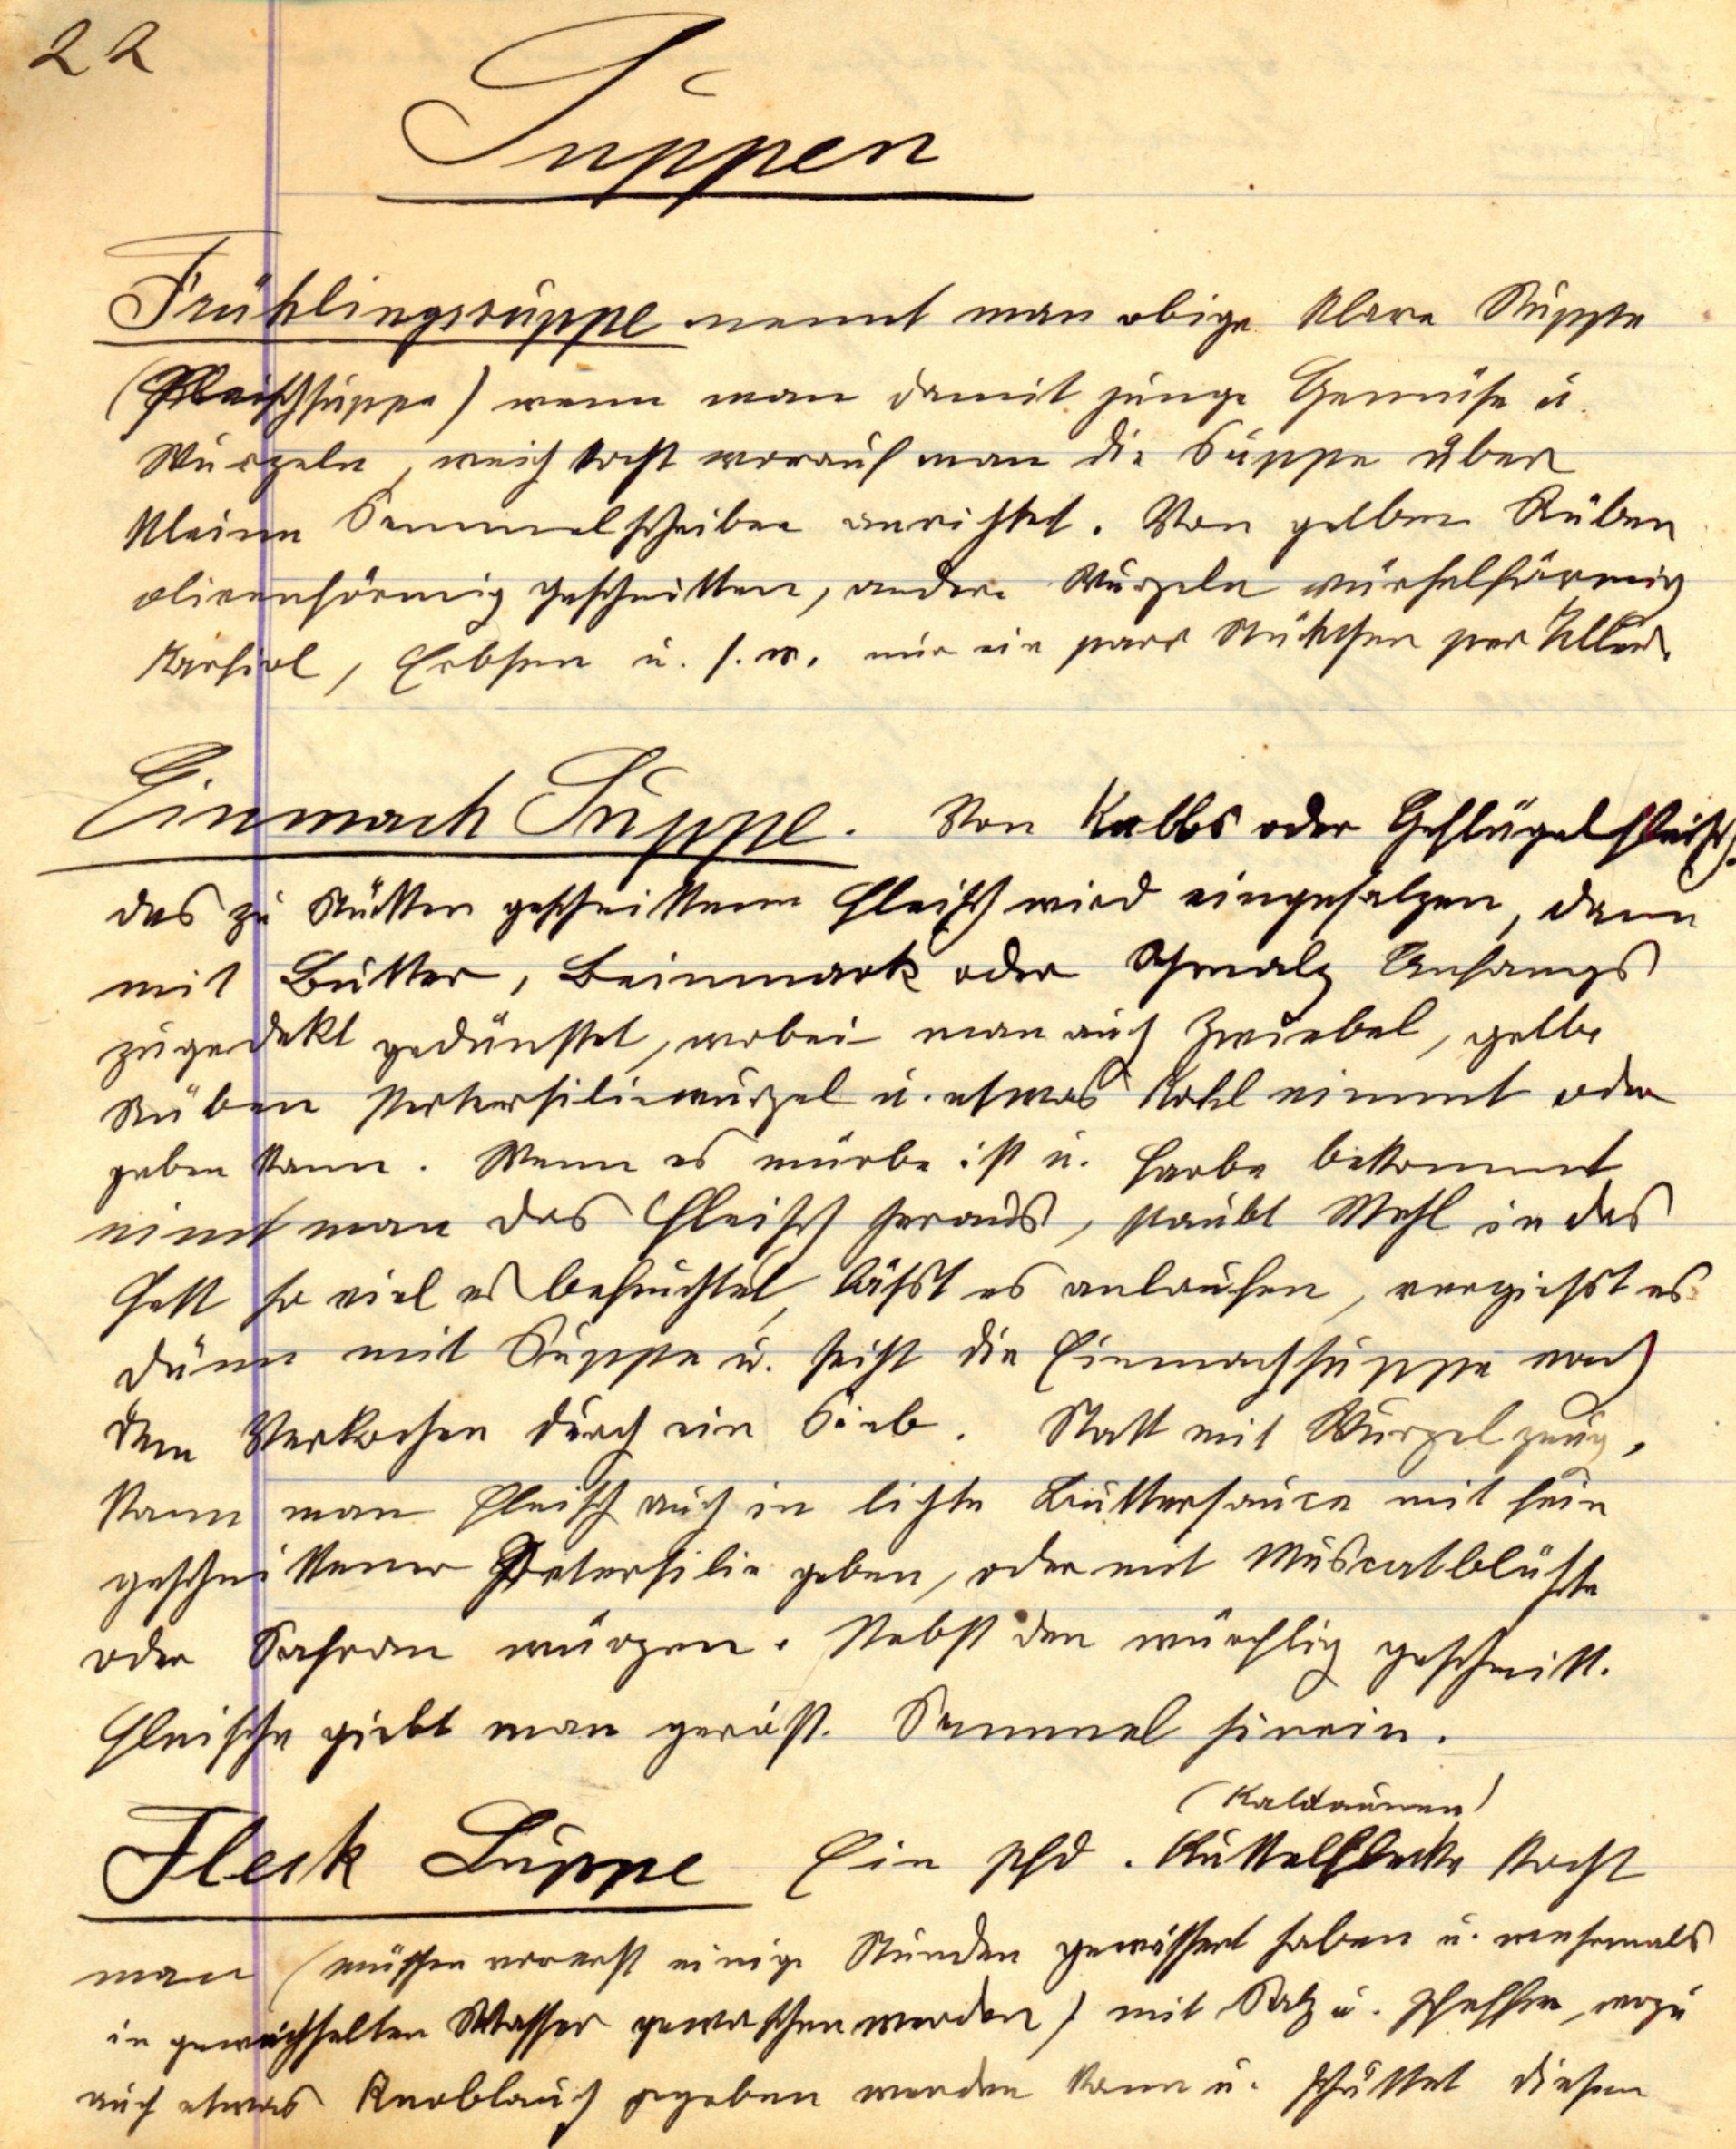 22
Suppen
Frühlingssuppe nennt man obige klare Suppe
(Fleischsuppe) wenn man damit junge Gemüse u.
Wurzeln, weich kocht worauf man die Suppe über
kleine Semmelscheiben anrichtet. Von gelben Rüben
olivenförmig geschnitten, andere Wurzeln würfelförmig
Karfiol, Erbsen u. s. w. nur ein paar Stückchen per Teller.
Einmach Suppe. Von Kalbs oder Geflügelfleisch.
das zu Stücken geschnittene Fleisch wird eingesalzen, dann
mit Butter, Beinmark oder Schmalz Anfangs
zugedekt gedünstet, wobei man auch Zwiebel, gelbe
Rüben Petersiliewurzel u. etwas Kohl nimmt oder
geben kann. Wenn es mürbe ist u. Farbe bekommt
nimt man das Fleisch heraus, staubt Mehl in das
Fett so viel es befeuchtet, läßt es anlaufen, vergießt es
dünn mit Suppe u. seiht die Einmachsuppe nach
dem Verkochen durch ein Sieb. Statt mit Wurzelzeug,
kann man Fleisch auch in lichte Buttersauce mit fein
geschnittener Petersilie geben, oder mit Muscatblüthe
oder Safran würzen. Nebst den würflig geschnitt.
Fleische giebt man geröst. Semmel hinein.
(Kaldaunen)
Fleck Suppe Ein Pfd. Kuttelflecke kocht
man (müssen vorerst einige Stunden gewässert haben u. mehrmals
in gewechselten Wasser gewaschen werden) mit Salz u. Pfeffer, wozu
auch etwas Knoblauch gegeben werden kann u. schüttet diesen